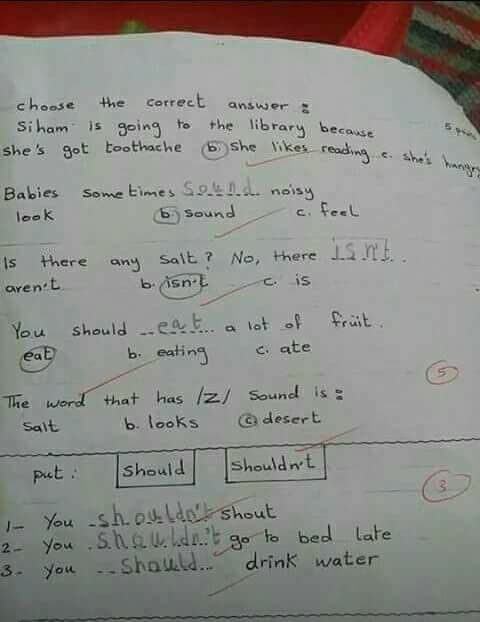 choose the correct answer :
5 points
Siham is going to the library because
she's got toothache b. she likes reading c. she's hungry
Babies sometimes sound noisy
look b. sound c. feel
Is there any salt? No, there isn't..
aren't b. isn't c. is
You should ..eat... a lot of fruit.
eat b. eating c. ate
5
The word that has /z/ sound is :
salt b. looks c desert
put : should shouldn't
3
1- You .shouldn't shout
2- You .shouldn't go to bed late
3- You ..should... drink water